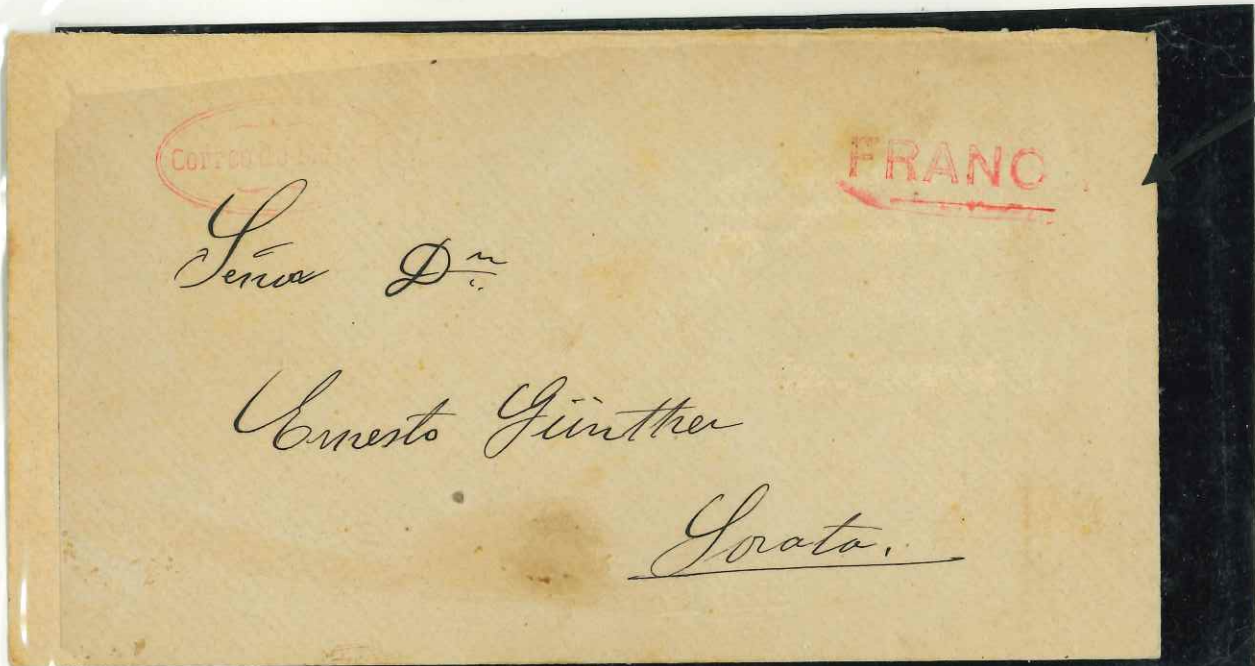 Correo
FRANC
Señor Dn
Ernesto Günther
Sorata.